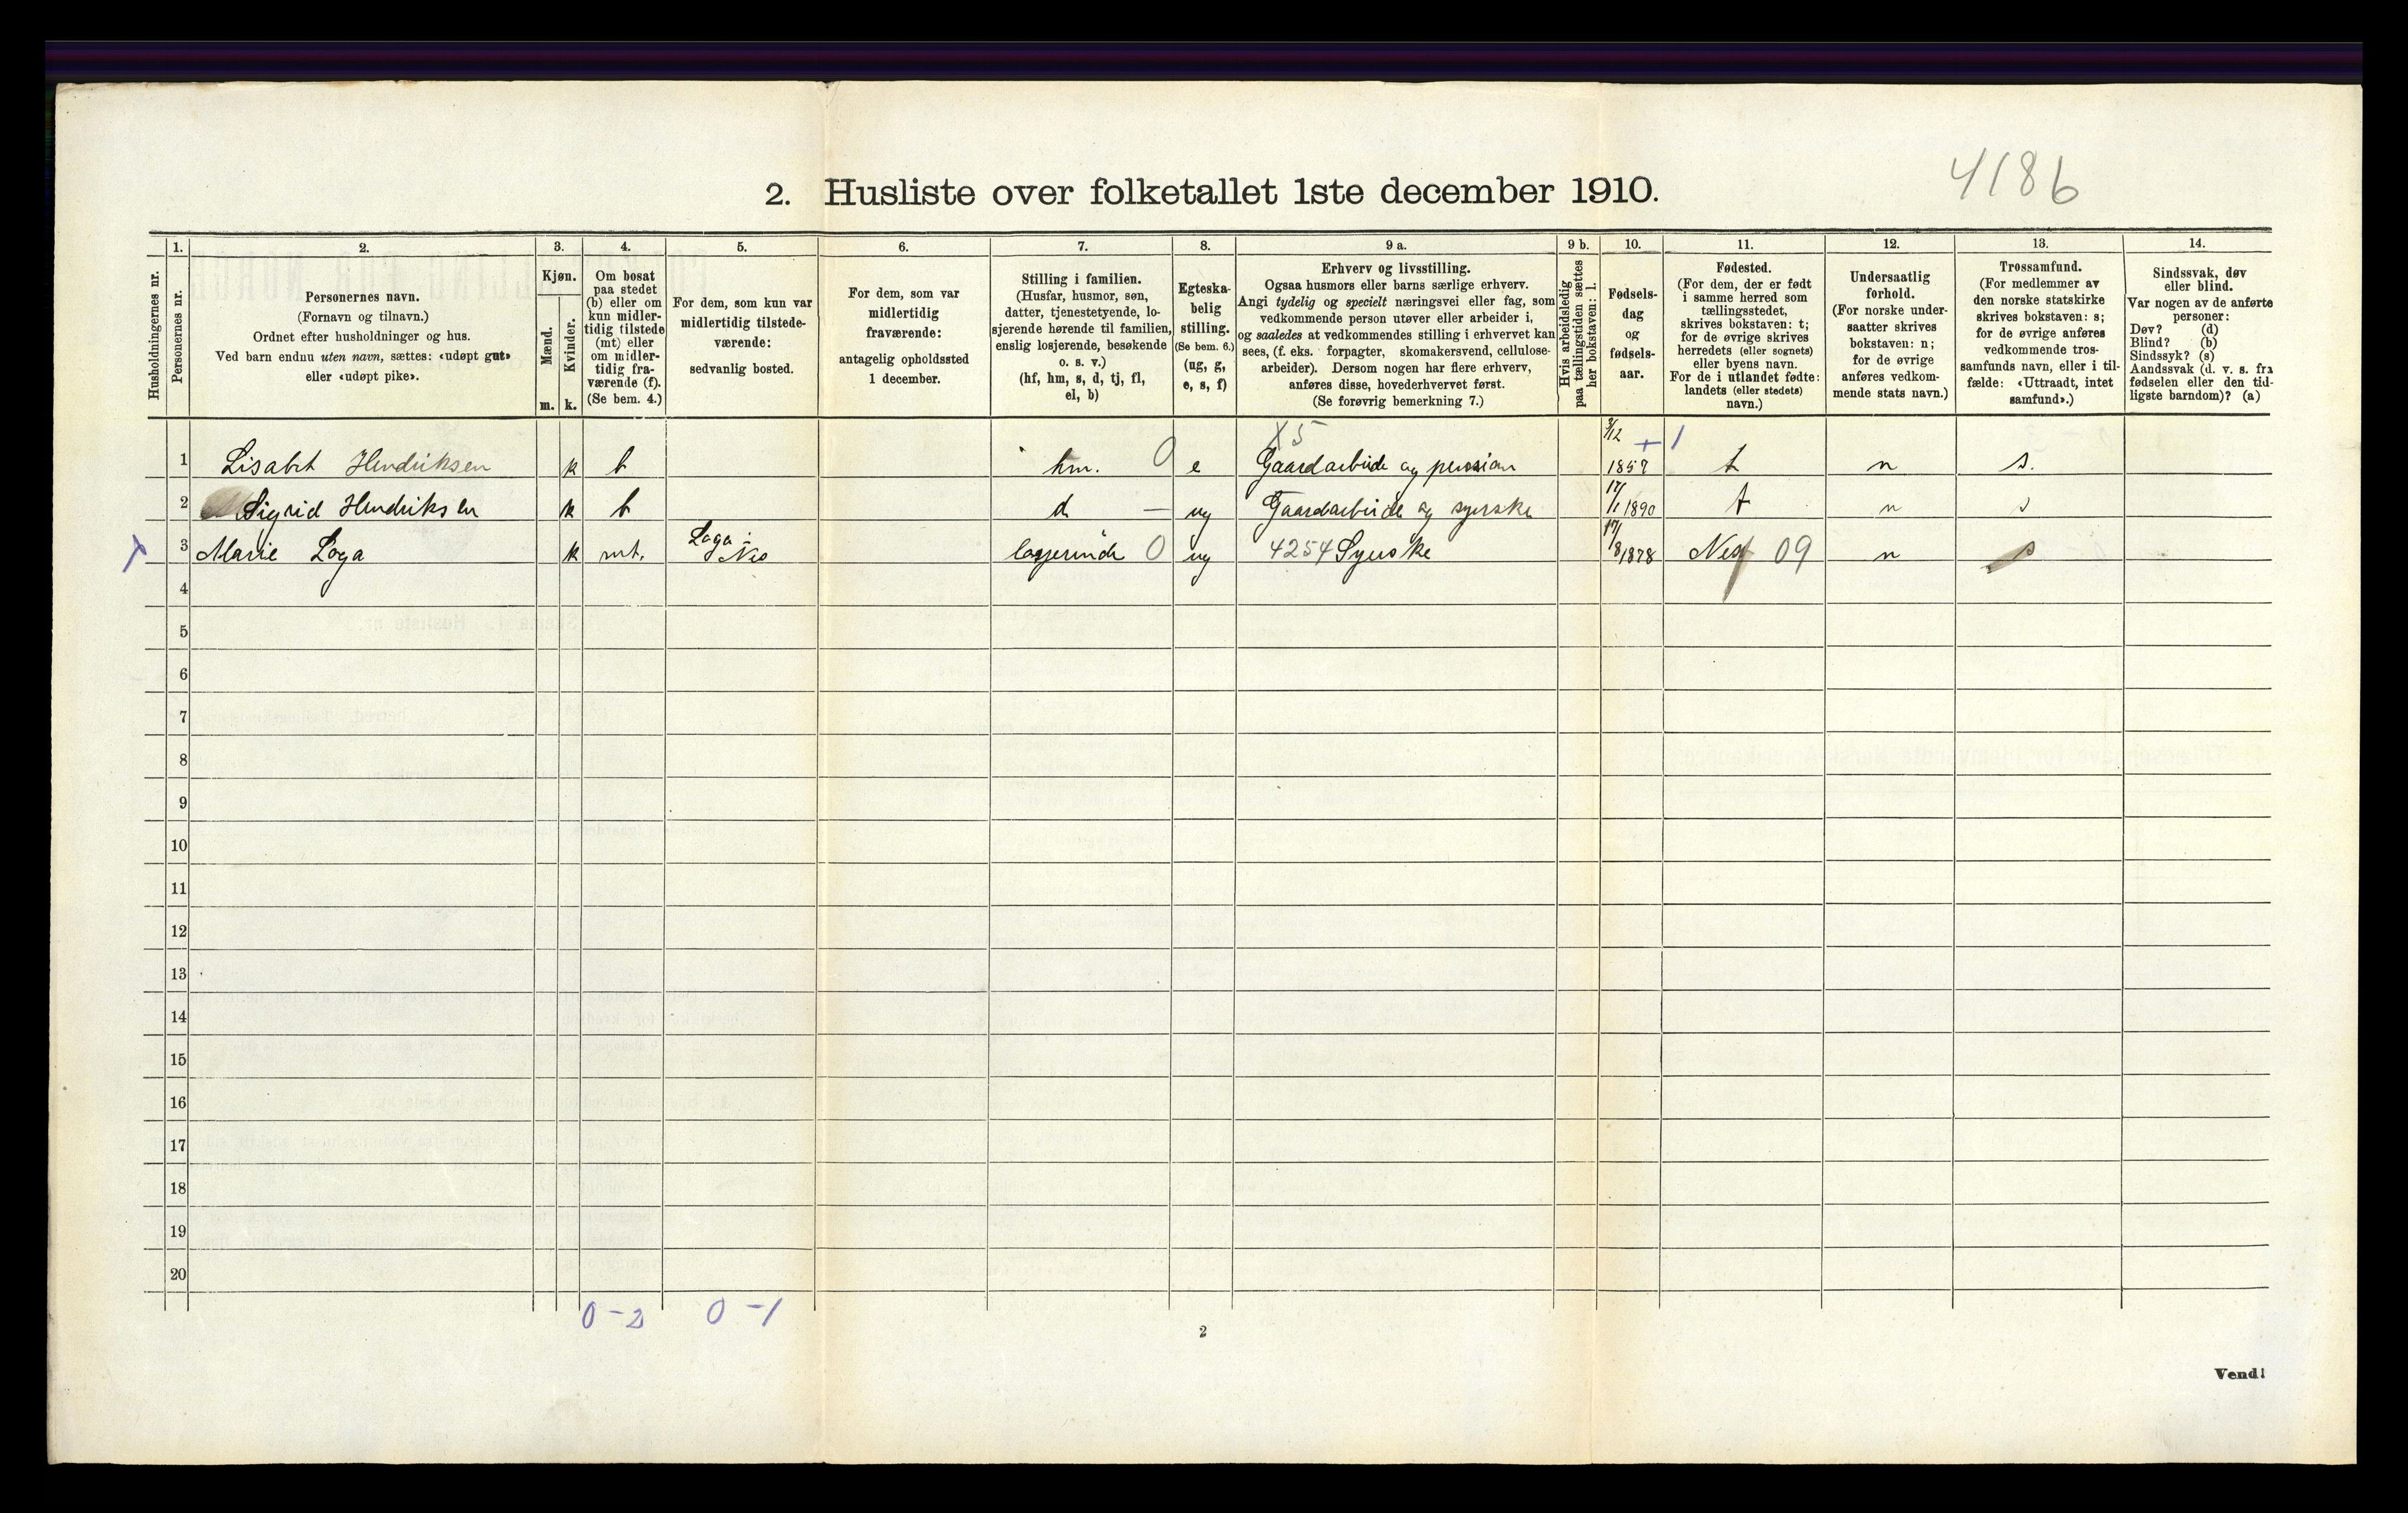 4186
2. Husliste over folketallet 1ste december 1910.
Husholdningernes nr.
1.
Personernes nr.
2.
Personernes navn.
(Fornavn og tilnavn.)
Ordnet efter husholdninger og hus.
Ved barn endnu uten navn, sættes: «udøpt gut»
eller «udøpt pike».
3.
Kjøn.
Mænd.
Kvinder.
m. k.
4.
Om bosat
paa stedet
(b) eller om
kun midler-
tidig tilstede
(mt) eller
om midler-
tidig fra-
værende (f).
(Se bem. 4.)
5.
For dem, som kun var
midlertidig tilstede-
værende:
sedvanlig bosted.
6.
For dem, som var
midlertidig
fraværende:
antagelig opholdssted
1 december.
7.
Stilling i familien.
(Husfar, husmor, søn,
datter, tjenestetyende, lo-
sjerende hørende til familien,
enslig losjerende, besøkende
o. s. v.)
(hf, hm, s, d, tj, fl,
el, b)
8.
Egteska-
belig
stilling.
(Se bem. 6.)
(ug, g,
e, s, f)
9 a.
Erhverv og livsstilling.
Ogsaa husmors eller barns særlige erhverv.
Angi tydelig og specielt næringsvei eller fag, som
vedkommende person utøver eller arbeider i,
og saaledes at vedkommendes stilling i erhvervet kan
sees, (f. eks. forpagter, skomakersvend, cellulose-
arbeider). Dersom nogen har flere erhverv,
anføres disse, hovederhvervet først.
(Se forøvrig bemerkning 7.)
9 b.
Hvis arbeidsledig
paa tællingstiden sættes
her bokstaven: l.
10.
Fødsels-
dag
og
fødsels-
aar.
11.
Fødested.
(For dem, der er født
i samme herred som
tællingsstedet,
skrives bokstaven: t;
for de øvrige skrives
herredets (eller sognets)
eller byens navn.
For de i utlandet fødte:
landets (eller stedets)
navn.)
12.
Undersaatlig
forhold.
(For norske under-
saatter skrives
bokstaven: n;
for de øvrige
anføres vedkom-
mende stats navn.)
13.
Trossamfund.
(For medlemmer av
den norske statskirke
skrives bokstaven: s;
for de øvrige anføres
vedkommende tros-
samfunds navn, eller i til-
fælde: «Uttraadt, intet
samfund».)
14.
Sindssvak, døv
eller blind.
Var nogen av de anførte
personer:
Døv? (d)
Blind? (b)
Sindssyk? (s)
Aandssvak (d. v. s. fra
fødselen eller den tid-
ligste barndom)? (a)
X5 3/12 + 1
1 Lisabet Hendriksen k b hm. 0 e Gaardarbeide og pension 1857 t n s.
2 Sigrid Hendriksen k b d — ug Gaardarbeide og syerske 17/1 1890 t n s
3 Marie Loga k mt. Loga i Nes 0 ug 4254 Syerske 17/8 1878 Nes 09 n s
4
5
6
7
8
9
10
11
12
13
14
15
16
17
18
19
20
0 - 2 0 - 1
2
Vend!